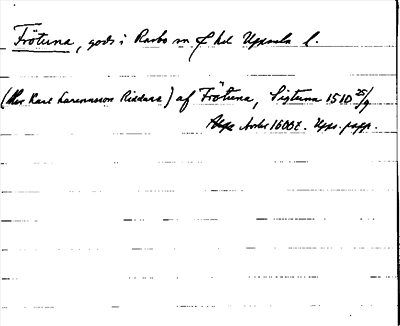 Frötuna, gods i Rasbo sn o hd Uppsala l.
(Her Karl Larensson Riddare) af Frötuna, Sigtuna 1510 25/9
avskr 1600t. Upps. papp.